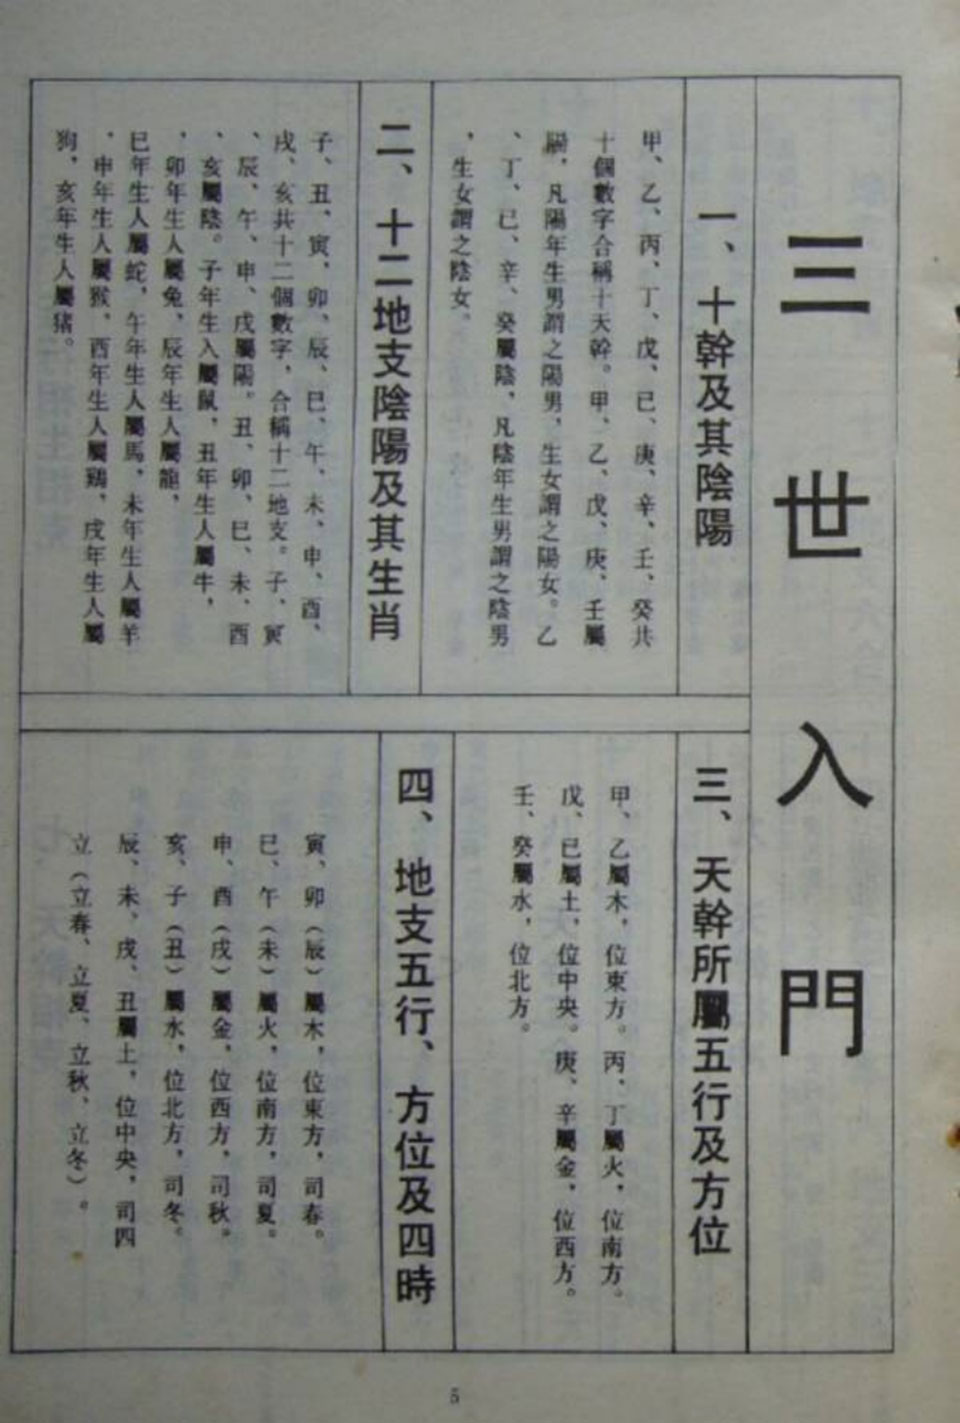 三世入門
一、十幹及其陰陽
甲、乙、丙、丁、戊、已、庚、辛、壬、癸共
十個數字合稱十天幹。甲、乙、戊、庚、壬屬
陽，凡陽年生男謂之陽男，生女謂之陽女。乙
、丁、已、辛、癸屬陰，凡陰年生男謂之陰男
，生女謂之陰女。
二、十二地支陰陽及其生肖
子、丑、寅、卯、辰、巳、午、未、申、酉、
戌、亥共十二個數字，合稱十二地支。子、寅
、辰、午、申、戌屬陽。丑、卯、巳、未、酉
、亥屬陰。子年生入屬鼠，丑年生人屬牛，
，卯年生人屬兔，辰年生人屬龍，
巳年生人屬蛇，午年生人屬馬，未年生人屬羊
，申年生人屬猴，酉年生人屬鷄，戌年生人屬
狗，亥年生人屬猪。
三、天幹所屬五行及方位
甲、乙屬木，位東方。丙、丁屬火，位南方。
戊、已屬土，位中央。庚、辛屬金，位西方。
壬、癸屬水，位北方。
四、地支五行、方位及四時
寅、卯（辰）屬木，位東方，司春。
巳、午（未）屬火，位南方，司夏。
申、酉（戌）屬金，位西方，司秋。
亥、子（丑）屬水，位北方，司冬。
辰、未、戌、丑屬土，位中央，司四
立（立春、立夏、立秋、立冬）。
5